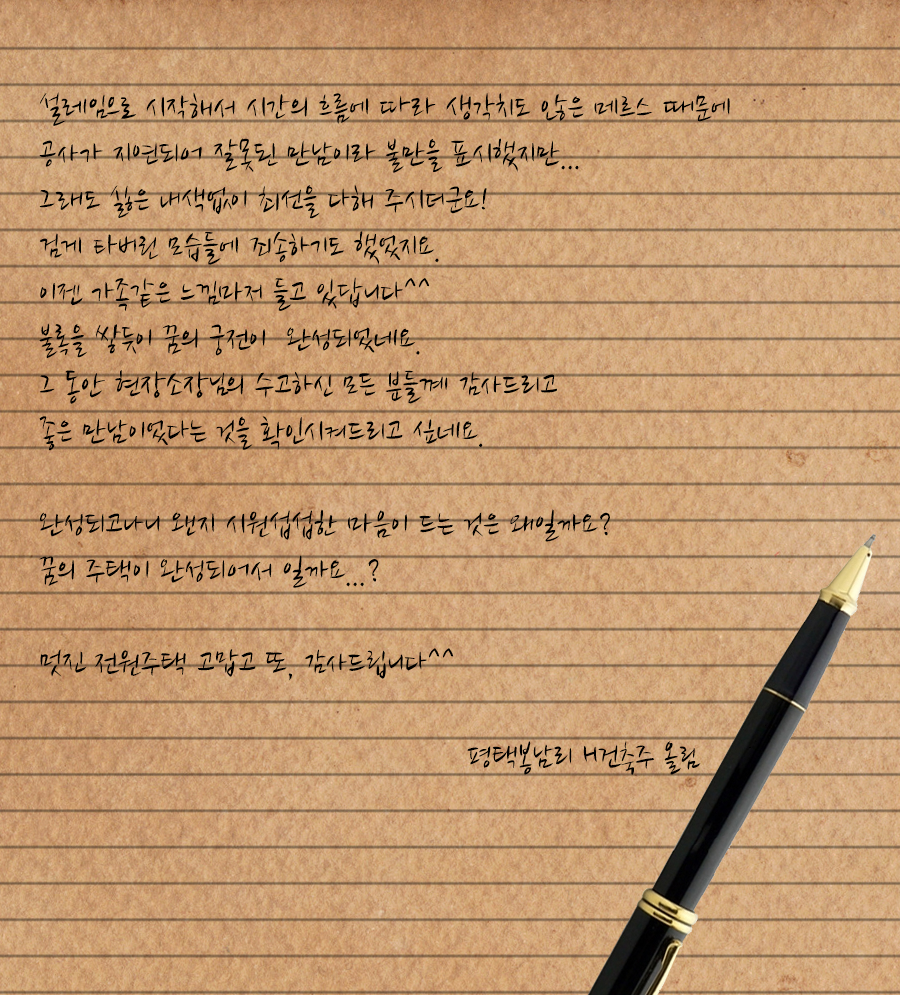 설레임으로 시작해서 시간의 흐름에 따라 생각치도 않은 메르스 때문에
공사가 지연되어 잘못된 만남이라 불만을 표시했지만...
그래도 싫은 내색없이 최선을 다해 주시더군요!
검게 타버린 모습들에 죄송하기도 했었지요.
이젠 가족같은 느낌마저 들고 있답니다^^
블록을 쌓듯이 꿈의 궁전이 완성되었네요.
그 동안 현장소장님의 수고하신 모든 분들께 감사드리고
좋은 만남이었다는 것을 확인시켜드리고 싶네요.
완성되고나니 왠지 시원섭섭한 마음이 드는 것은 왜일까요?
꿈의 주택이 완성되어서 일까요...?
멋진 전원주택 고맙고 또, 감사드립니다^^
평택봉남리 H건축주 올림